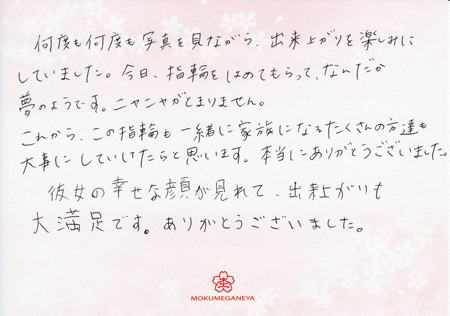 何度も何度も写真を見ながら、出来上がりを楽しみに
していました。今日、指輪をはめてもらって、なんだか
夢のようです。ニヤニヤがとまりません。
これから、この指輪も一緒に家族になるたくさんの方達も
大事にしていけたらと思います。本当にありがとうございました。
彼女の幸せな顔が見れて、出来上がりも
大満足です。ありがとうございました。
MOKUMEGANEYA